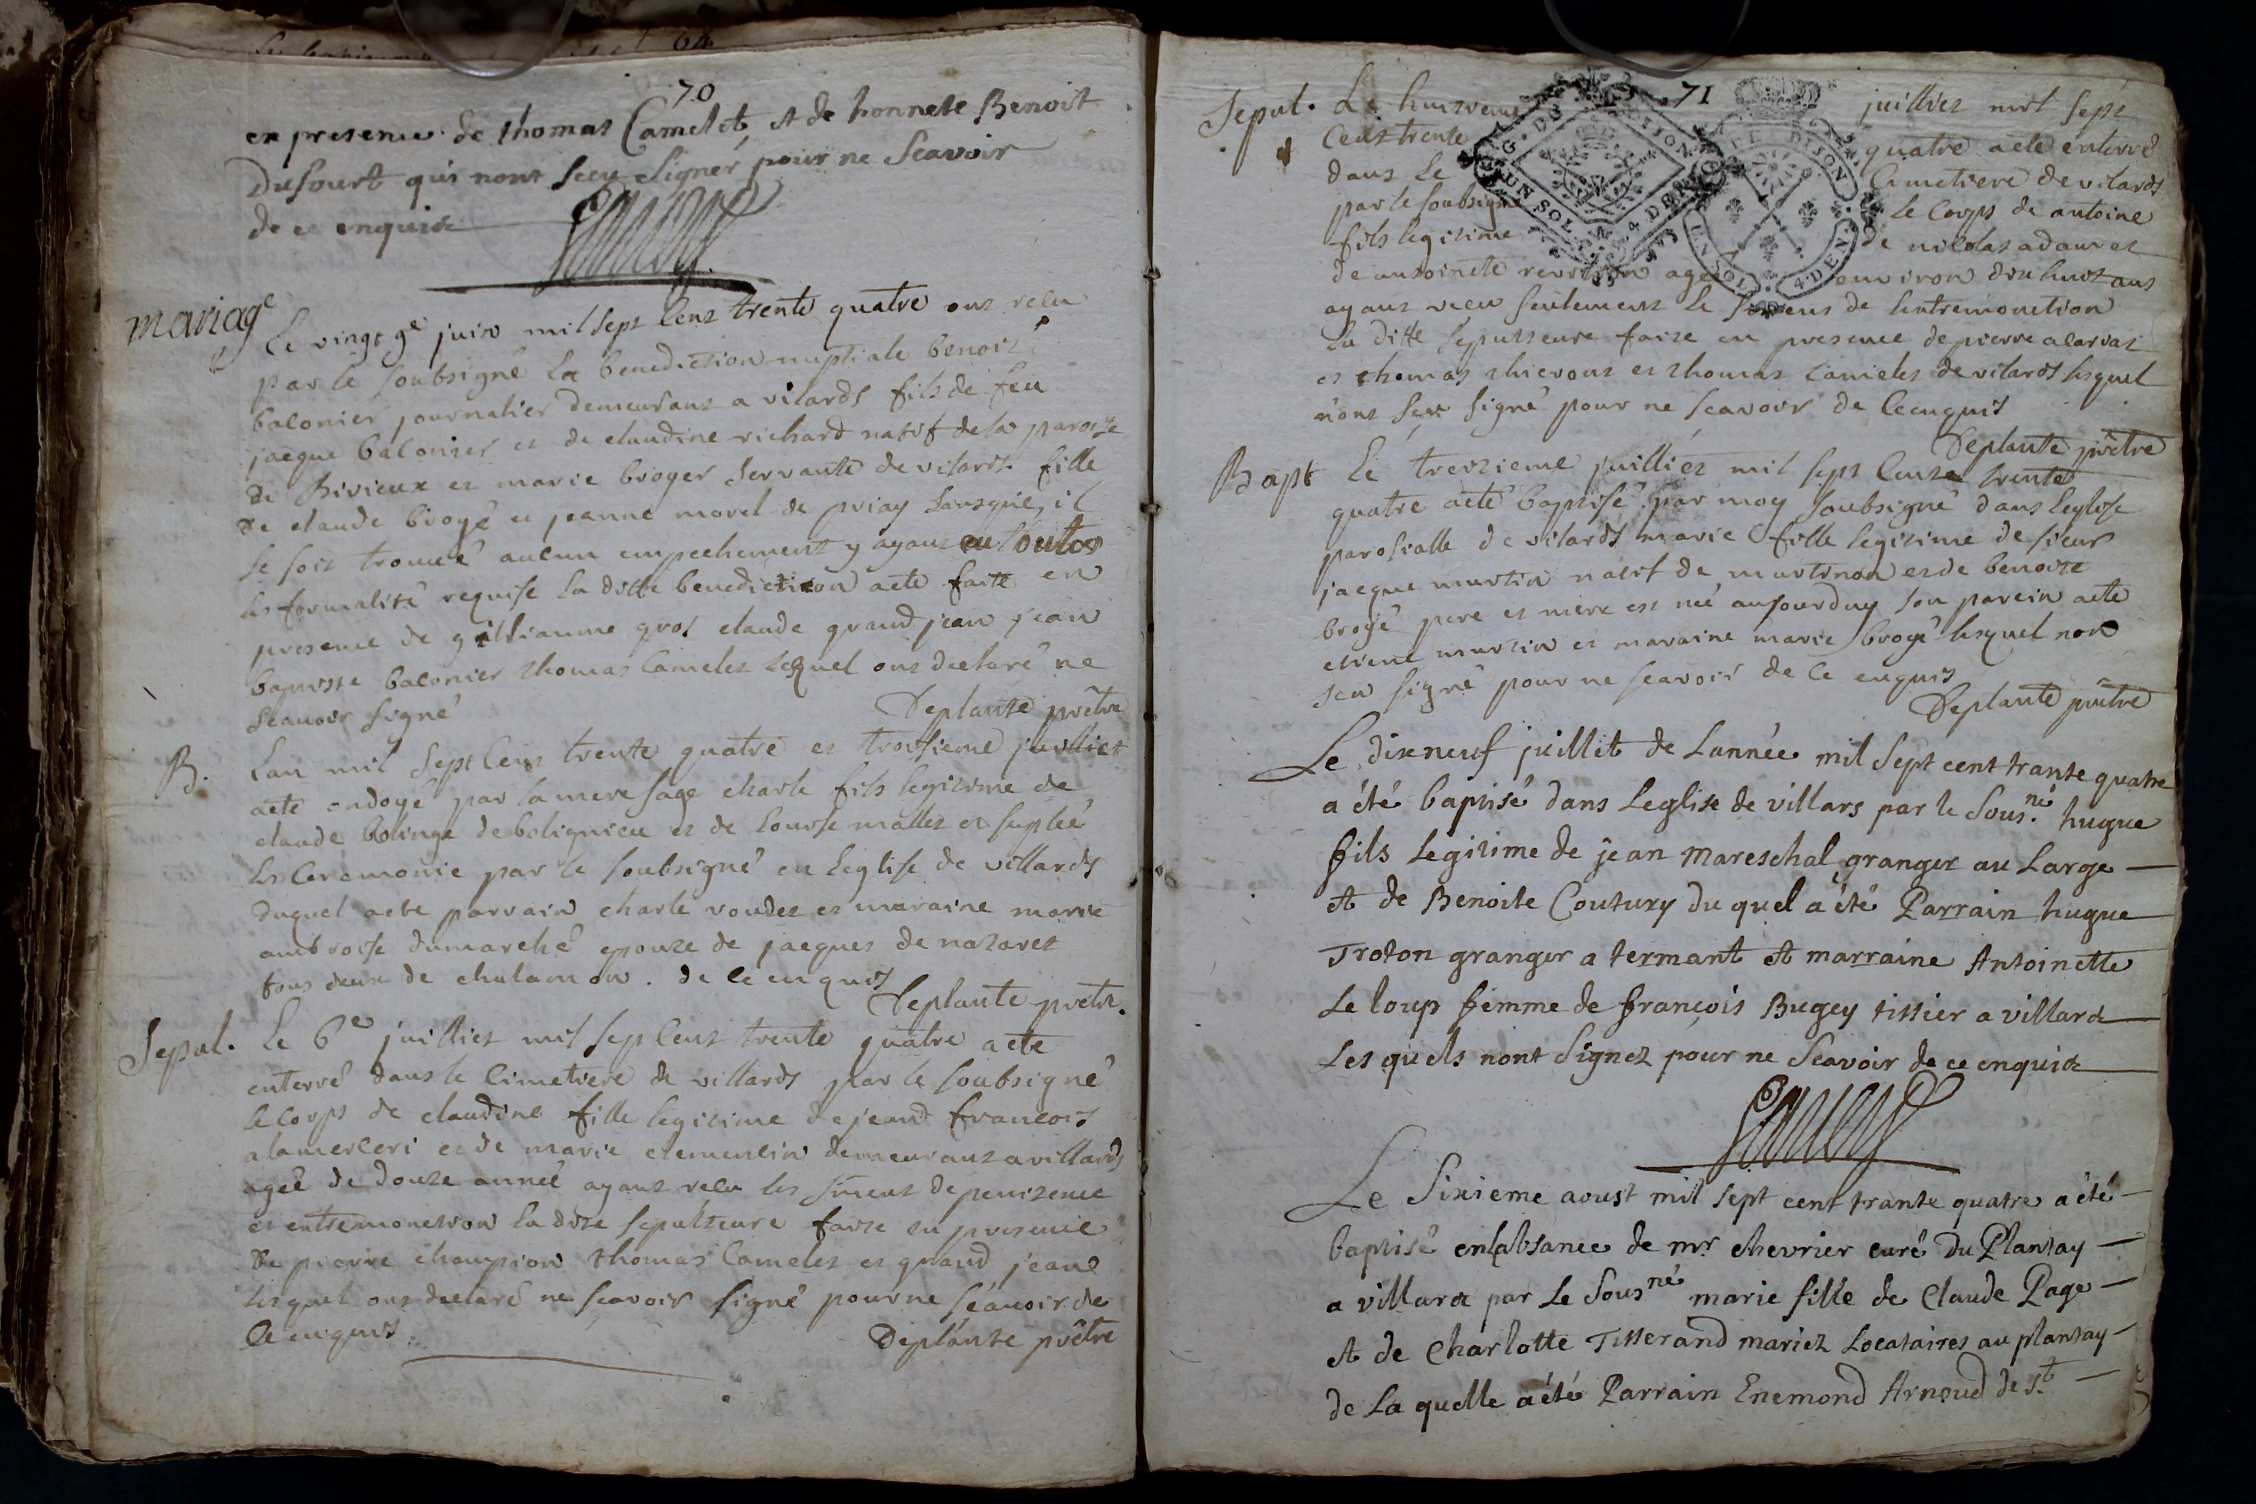 64
70
en presence de thomas Camelet, et de honnete Benoit
Dufourt qui nont sceu Signer pour ne Scavoir
de ce enquis
mariage
Le vingt 9e juin mil sept Cens trente quatre ont recu
par le soubsigné La benediction nuptiale benoit
balonier journalier demeurant a vilards fils de feu
jacque balonier et de claudine richard natif de la paroisse
de Birieux et marie broger servante de vilards fille
de claude brogé et jeanne morel de priay sansque, il
se soit trouvé aucun empechement y ayant eu toutes
les formalité requise la ditte benediction aete faite en
presence de guilliaume gros claude grand jean jean
baptiste balonier thomas Camelet Lesquel ont declaré ne
scauoir signé
Deplante prêtre
B.
Lan mil sept Cens trente quatre et troisieme juilliet
aete ondoyé par la mere sage charle fils legitime de
claude bolinge de bolignieu et de Louise mallet et suplée
Les Ceremonie par le soubsigné en Leglise de villards
duquel aete parrain charle voudet et maraine marie
ambroise dumarché epouze de jacques de nazaret
tous deux de chalamon . de ce enquis
Deplante prêtre.
Sepul.
Le 6e juilliet mil sep Cens trente quatre aete
enterré dans le Cimetiere de villards par le soubsigné
le Corps de claudine fille legitime de jean francois
alamerceri et de marie clemencin demeurant a villards
agée de douze année ayant recu les sacremens de penitence
et extremonction la dite sepulteure faite en presence
de pierre champion thomas Camelet et grand jean
lesquel ont declaré ne scavoir signé pour ne scauoir de
Ce enquis.
Deplante prêtre
71
Sepul.
Le huitieme juilliet mil sept
Cens trente quatre aete enterré
dans Le Cimetiere de vilards
par le soubsigné le Corps de antoine
fils legitime de nicolas adam et
de antoinete agé environ dix huit ans
ayant recu seulement le sacremens de lextremonction
La ditte sepulteure faite en presence de pierre
et thomas thievont et thomas Camelet de vilards lesquel
nont sceu signé pour ne scavoir de Ce enquis
Deplante prêtre
G. DE DIJON
UN SOL. 4 DEN.
G. DE DIJON
UN SOL 4. DEN.
Bapt
Le treizieme juilliet mil sept Cens trente
quatre aeté baptisé par moy soubsigné dans Leglise
parosialle de vilards marie fille legitime de sieur
jacque martin natif de martinon et de benoite
brogé pere et mere est née aujourduy son parein aete
etiene martin et maraine marie brogé lesquel non
sceu signé pour ne scavoir de Ce enquis
Deplante prêtre
Le dixneuf juillet de Lannée mil sept cent trante quatre
a été baptisé dans Leglise de villars par le Sous.né hugue
fils Legitime de jean Mareschal granger au Large
et de Benoite Coutury du quel a été Parrain hugue
Troton granger a termant et marraine Antoinette
Le loup femme de françois Bugey tissier a villard
Les quels nont Signez pour ne Scavoir de ce enquis
Le Sixieme aoust mil sept cent trante quatre a été
baptisé en labsance de mr. chevrier curé du Plantay
a villard par Le Sousné marie fille de Claude Page
et de Charlotte Tisserand mariez Locataires au plantay
de La quelle a été Parrain Enemond Arnoud de St.